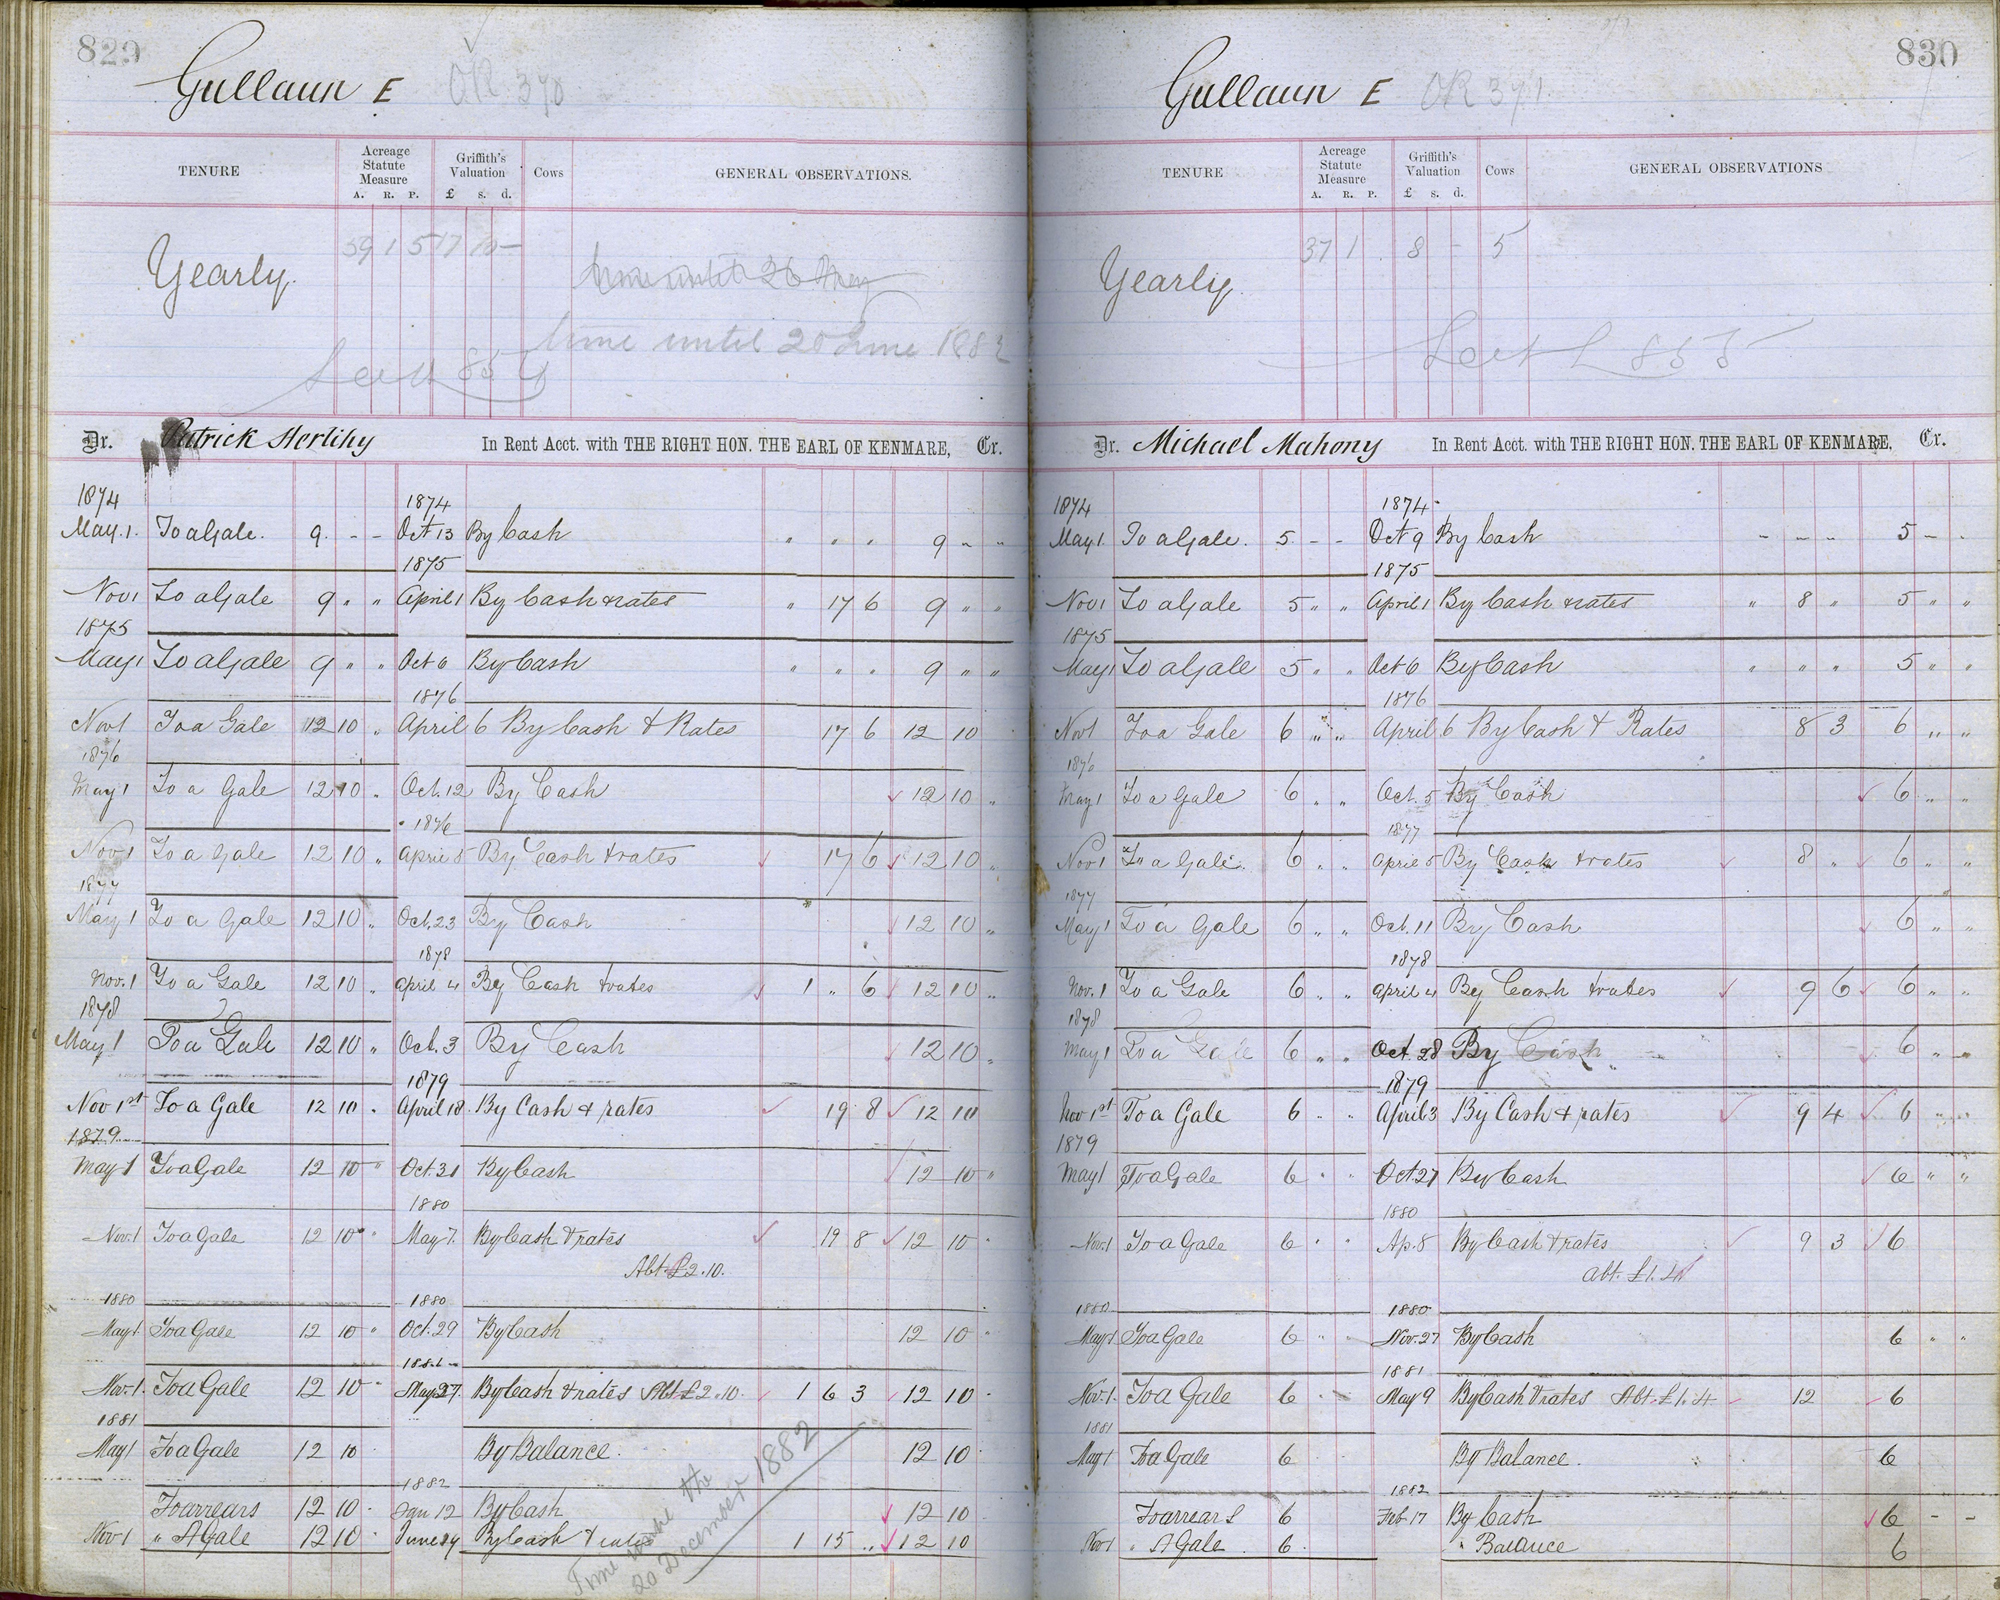 829
Gullaun E OR 370
TENURE
Acreage Statute Measure
A. R. P.
Griffith's Valuation
£ s. d.
Cows
GENERAL OBSERVATIONS.
Yearly. 39 1 5 17 10 –
time until 26 May
time until 20 June 1882
Dr. Patrick Herlihy In Rent Acct. with THE RIGHT HON. THE EARL OF KENMARE, Cr.
1874 1874
May. 1. To a Gale. 9. - - Oct 13 By Cash " " " 9 " "
1875
Nov 1 To a Gale 9 " " April 1 By Cash & rates " 17 6 9 " "
1875
May 1 To a Gale 9 " " Oct 6 By Cash " " " 9 " "
1876
Nov 1 To a Gale 12 10 " April 6 By Cash & Rates 17 6 12 10
1876
May 1 To a Gale 12 10 " Oct. 12 By Cash 12 10 "
1876
Nov 1 To a Gale 12 10 " April 5 By Cash & rates 17 6 12 10 "
1877
May 1 To a Gale 12 10 " Oct. 23 By Cash 12 10 "
1878
Nov. 1 To a Gale 12 10 " April 4 By Cash & rates 1 " 6 12 10 "
1878
May 1 To a Gale 12 10 " Oct. 3 By Cash 12 10 "
1879
Nov 1st To a Gale 12 10 " April 18 By Cash & rates 19 8 12 10
1879
May 1 To a Gale 12 10 " Oct. 31 By Cash 12 10 "
1880
Nov. 1 To a Gale 12 10 " May 7. By Cash & rates 19 8 12 10 "
Abt. £2.10.
1880 1880
May 1. To a Gale 12 10 " Oct. 29 By Cash 12 10 "
1881
Nov. 1. To a Gale 12 10 " May 27. By Cash & rates Abt £2.10. 1 6 3 12 10 "
1881
May 1 To a Gale 12 10 By Balance. 12 10
1882
To arrears 12 10 Jan 12 By Cash 12 10
Nov 1 " A Gale 12 10 June 24 By Cash & rates 1 15 " 12 10
Time until the
20 December 1882
830
Gullaun E OR 371
TENURE
Acreage Statute Measure
A. R. P.
Griffith's Valuation
£ s. d.
Cows
GENERAL OBSERVATIONS
Yearly. 37 1 . 8 – 5
See L 855
Dr. Michael Mahony In Rent Acct. with THE RIGHT HON. THE EARL OF KENMARE, Cr.
1874 1874
May 1. To a Gale. 5 - - Oct 9 By Cash - - - 5 - -
1875
Nov 1 To a Gale 5 " " April 1 By Cash & rates " 8 " 5 " "
1875
May 1 To a Gale 5 " " Oct 6 By Cash " " " 5 " "
1876
Nov 1 To a Gale 6 " " April 6 By Cash & Rates 8 3 6 " "
1876
May 1 To a Gale 6 " " Oct. 5 By Cash 6 " "
1877
Nov 1 To a Gale. 6 " " April 5 By Cash & rates 8 " 6 " "
1877
May 1 To a Gale 6 " " Oct. 11 By Cash 6 " "
1878
Nov. 1 To a Gale 6 " " April 4 By Cash & rates 9 6 6 " "
1878
May 1 To a Gale 6 " " Oct. 28 By Cash 6 " "
1879
Nov 1st To a Gale 6 " " April 3 By Cash & rates 9 4 6 " "
1879
May 1 To a Gale 6 " " Oct. 27 By Cash 6 " "
1880
Nov. 1 To a Gale 6 " " Ap. 8 By Cash & rates 9 3 6
Abt. £1.4
1880 1880
May 1 To a Gale 6 " " Nov. 27 By Cash 6 " "
1881
Nov. 1. To a Gale 6 " May 9 By Cash & rates Abt. £1.4 12 6
1881
May 1 To a Gale 6 By Balance. 6
1882
To arrears 6 Feb 17 By Cash 6 - -
Nov 1 " A Gale 6 " Balance 6